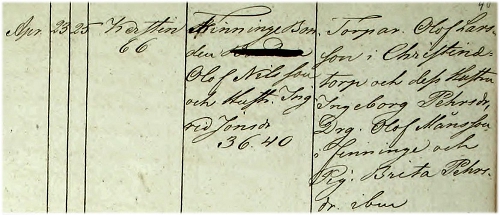 Apr. 23 25 Kerstin
66
Finninge Bon-
den
Olof Nilsson
och Hustr. Ing-
rid Jonsdr
36. 40
Torpar. Olof Lars-
son i Christine-
torp och dess Hustru
Ingeborg Pehrsdr,
Drg. Olof Månsson
i Finninge och
Pig. Brita Pehrs-
dr. ibm